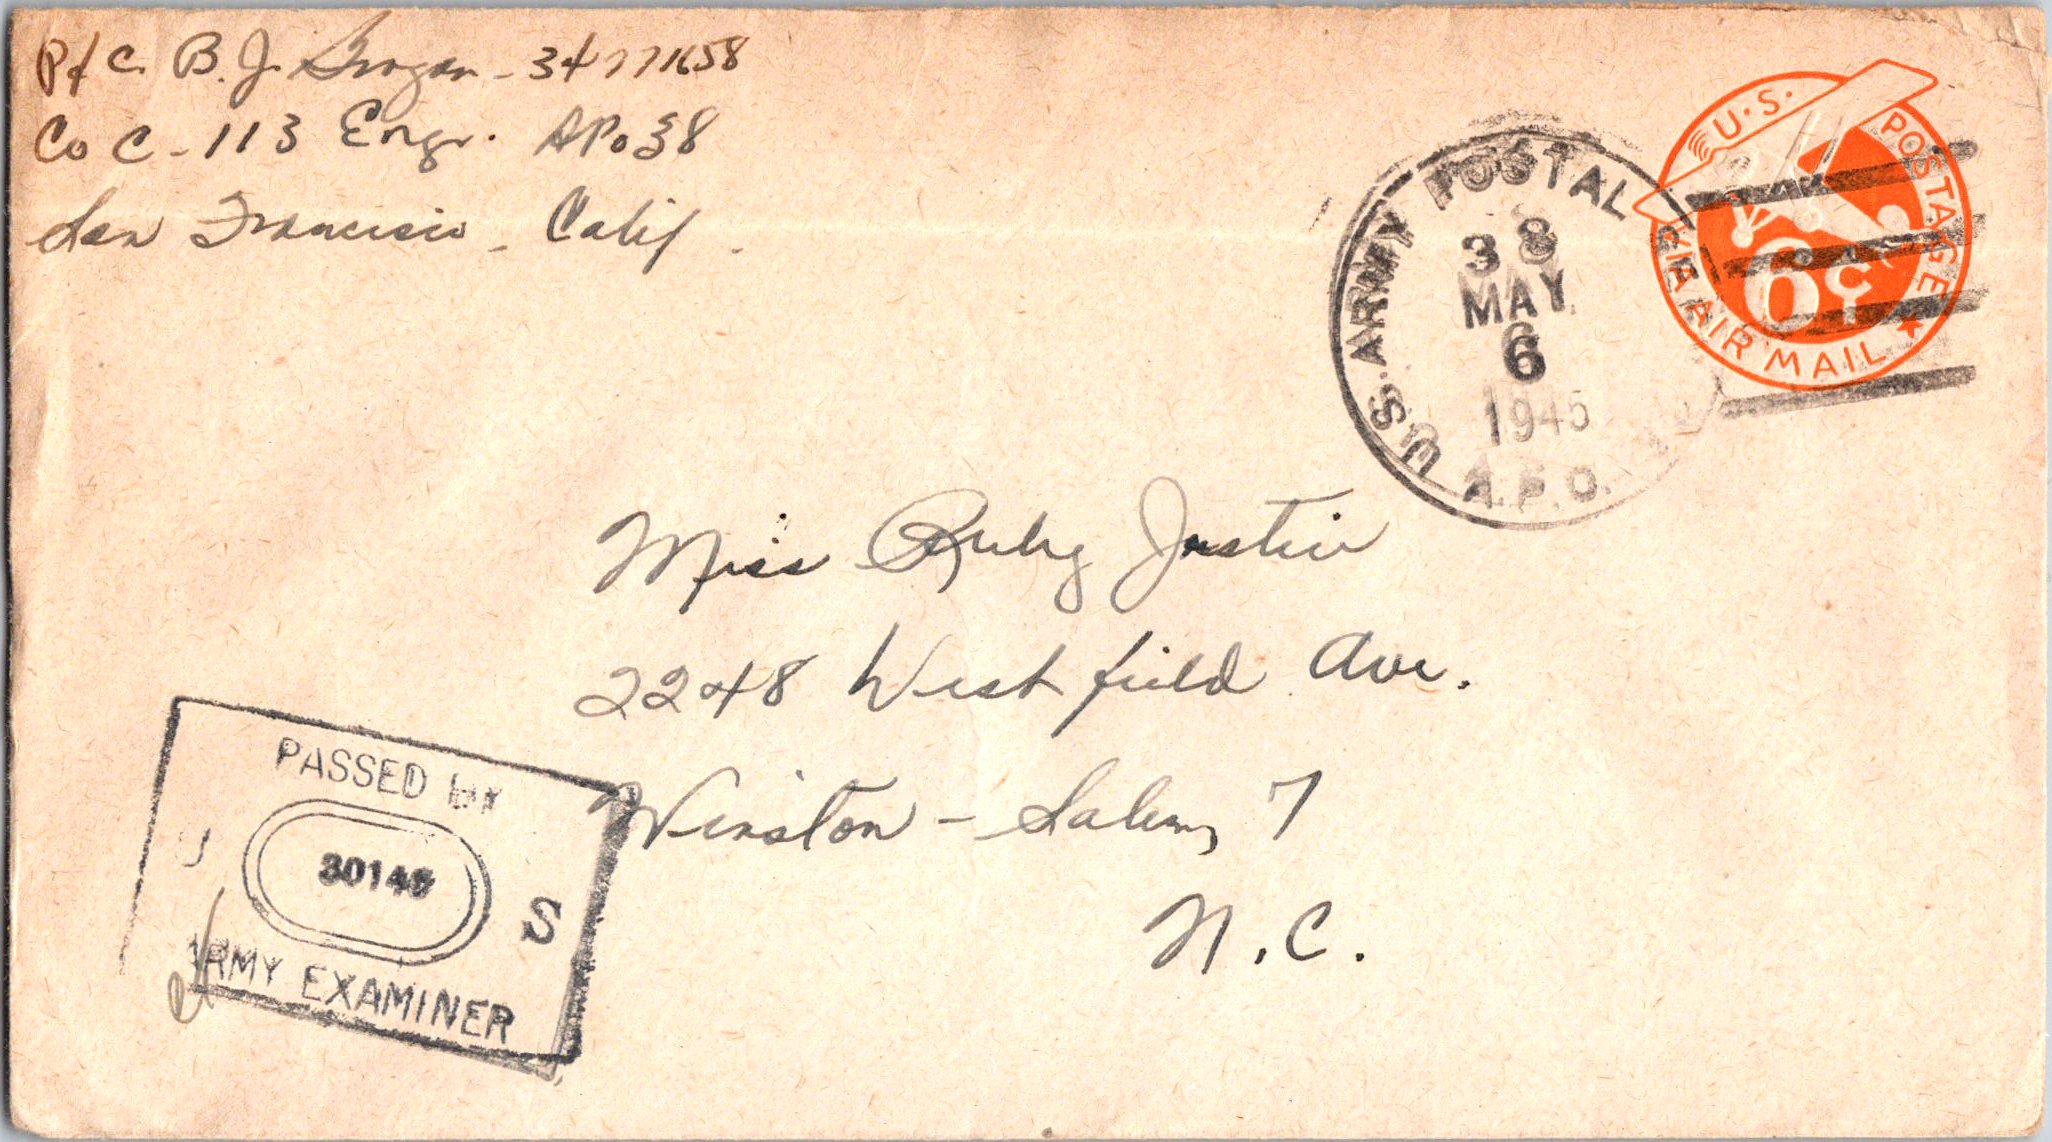 Pfc. B. J. Grogan - 34771658
Co C - 113 Engr. APO 38
San Francisco - Calif.
U.S. ARMY POSTAL
38
MAY
6
1945
A.P.O.
U.S. POSTAGE
6¢
VIA AIR MAIL
Miss Ruby Justice
2248 Westfield Ave.
Winston - Salem, 7
N. C.
PASSED BY
U S
ARMY EXAMINER